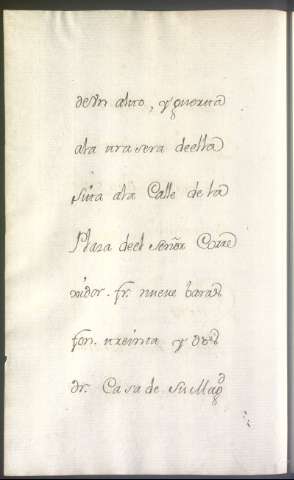 de Vn alto, y puerta
ala trasera deella
sita ala Calle de la
Plaza deel Señor Corre
xidor. fr. nueve baras
fon. treinta y dos
dr. Casa de Su Magd